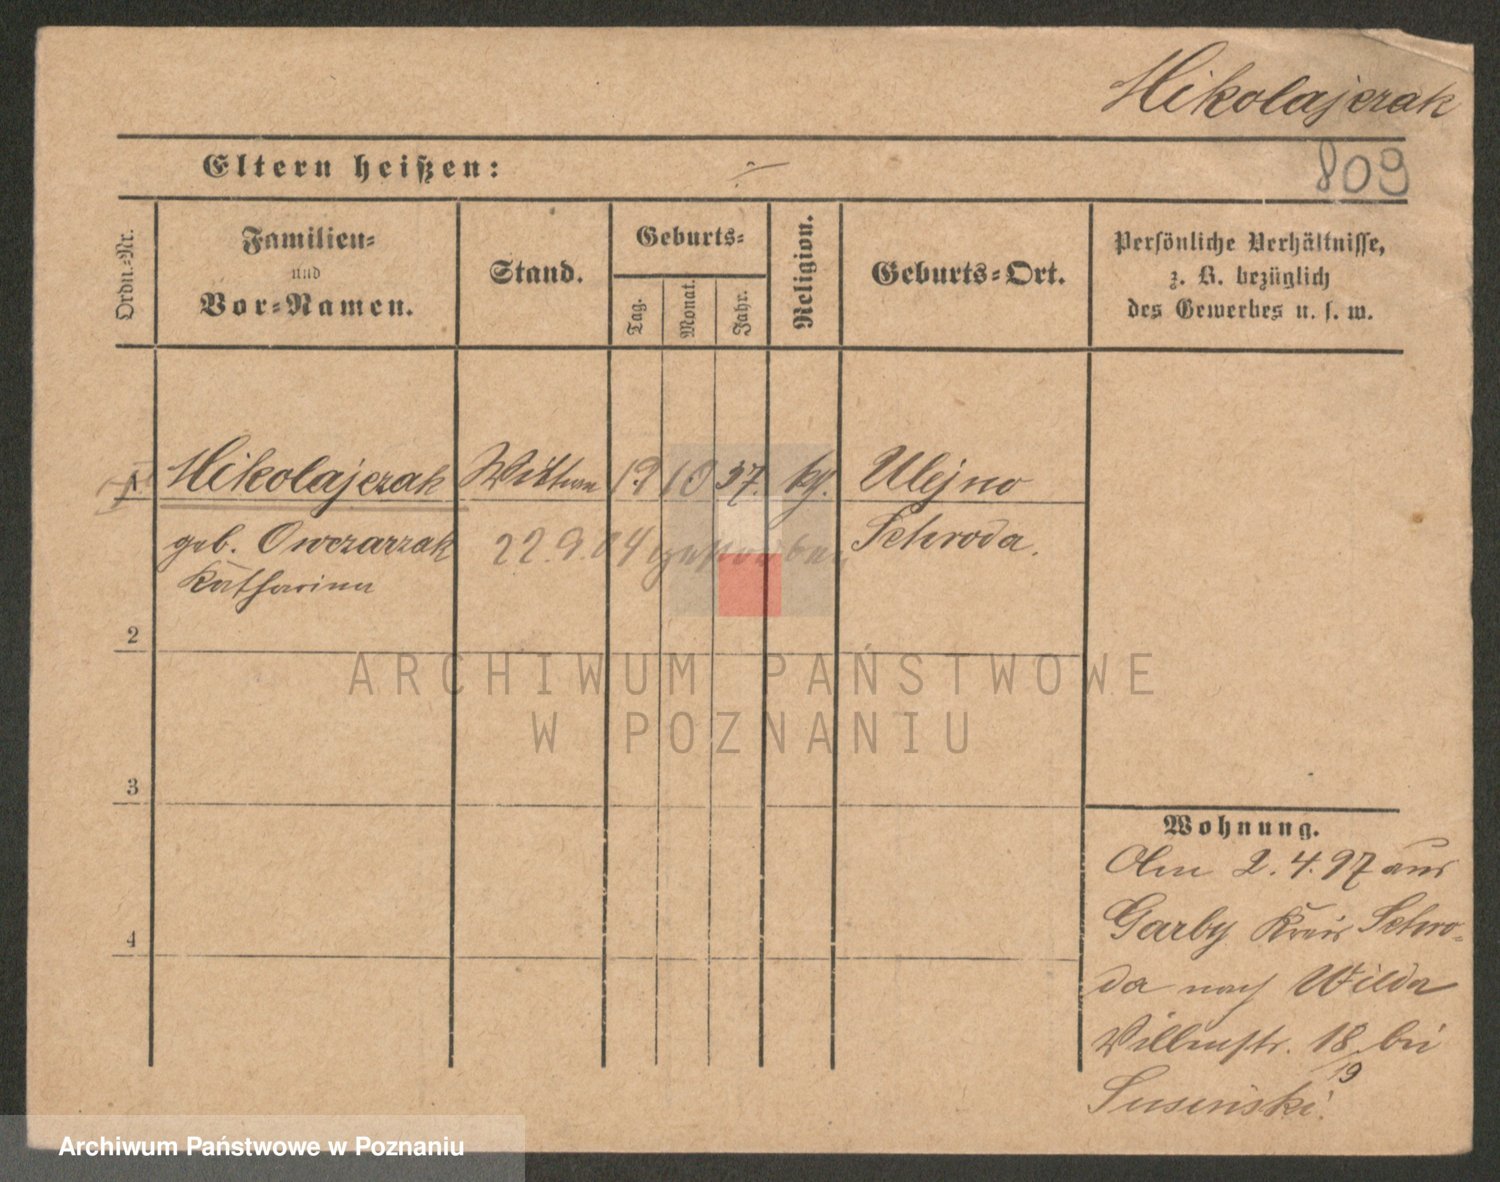 Mikolajczak
809
Eltern heißen: ÷
Ordn.-Nr.
Familien-
und
Vor-Namen.
Stand.
Geburts-
Tag.
Monat.
Jahr.
Religion.
Geburts-Ort.
Persönliche Verhältnisse,
z. B. bezüglich
des Gewerbes u. s. w.
1 Mikolajczak Wittwe 19 10 37. kf. Ulejno
geb. Owczarzak 22.9.04 gestorben Schroda.
Katharina
2
3
4
Wohnung.
Am 2.4.97 aus
Garby Kreis Schro-
da nach Wilda
Villenstr. 18 bei
19
Susinski.
ARCHIWUM PAŃSTWOWE
W POZNANIU
Archiwum Państwowe w Poznaniu